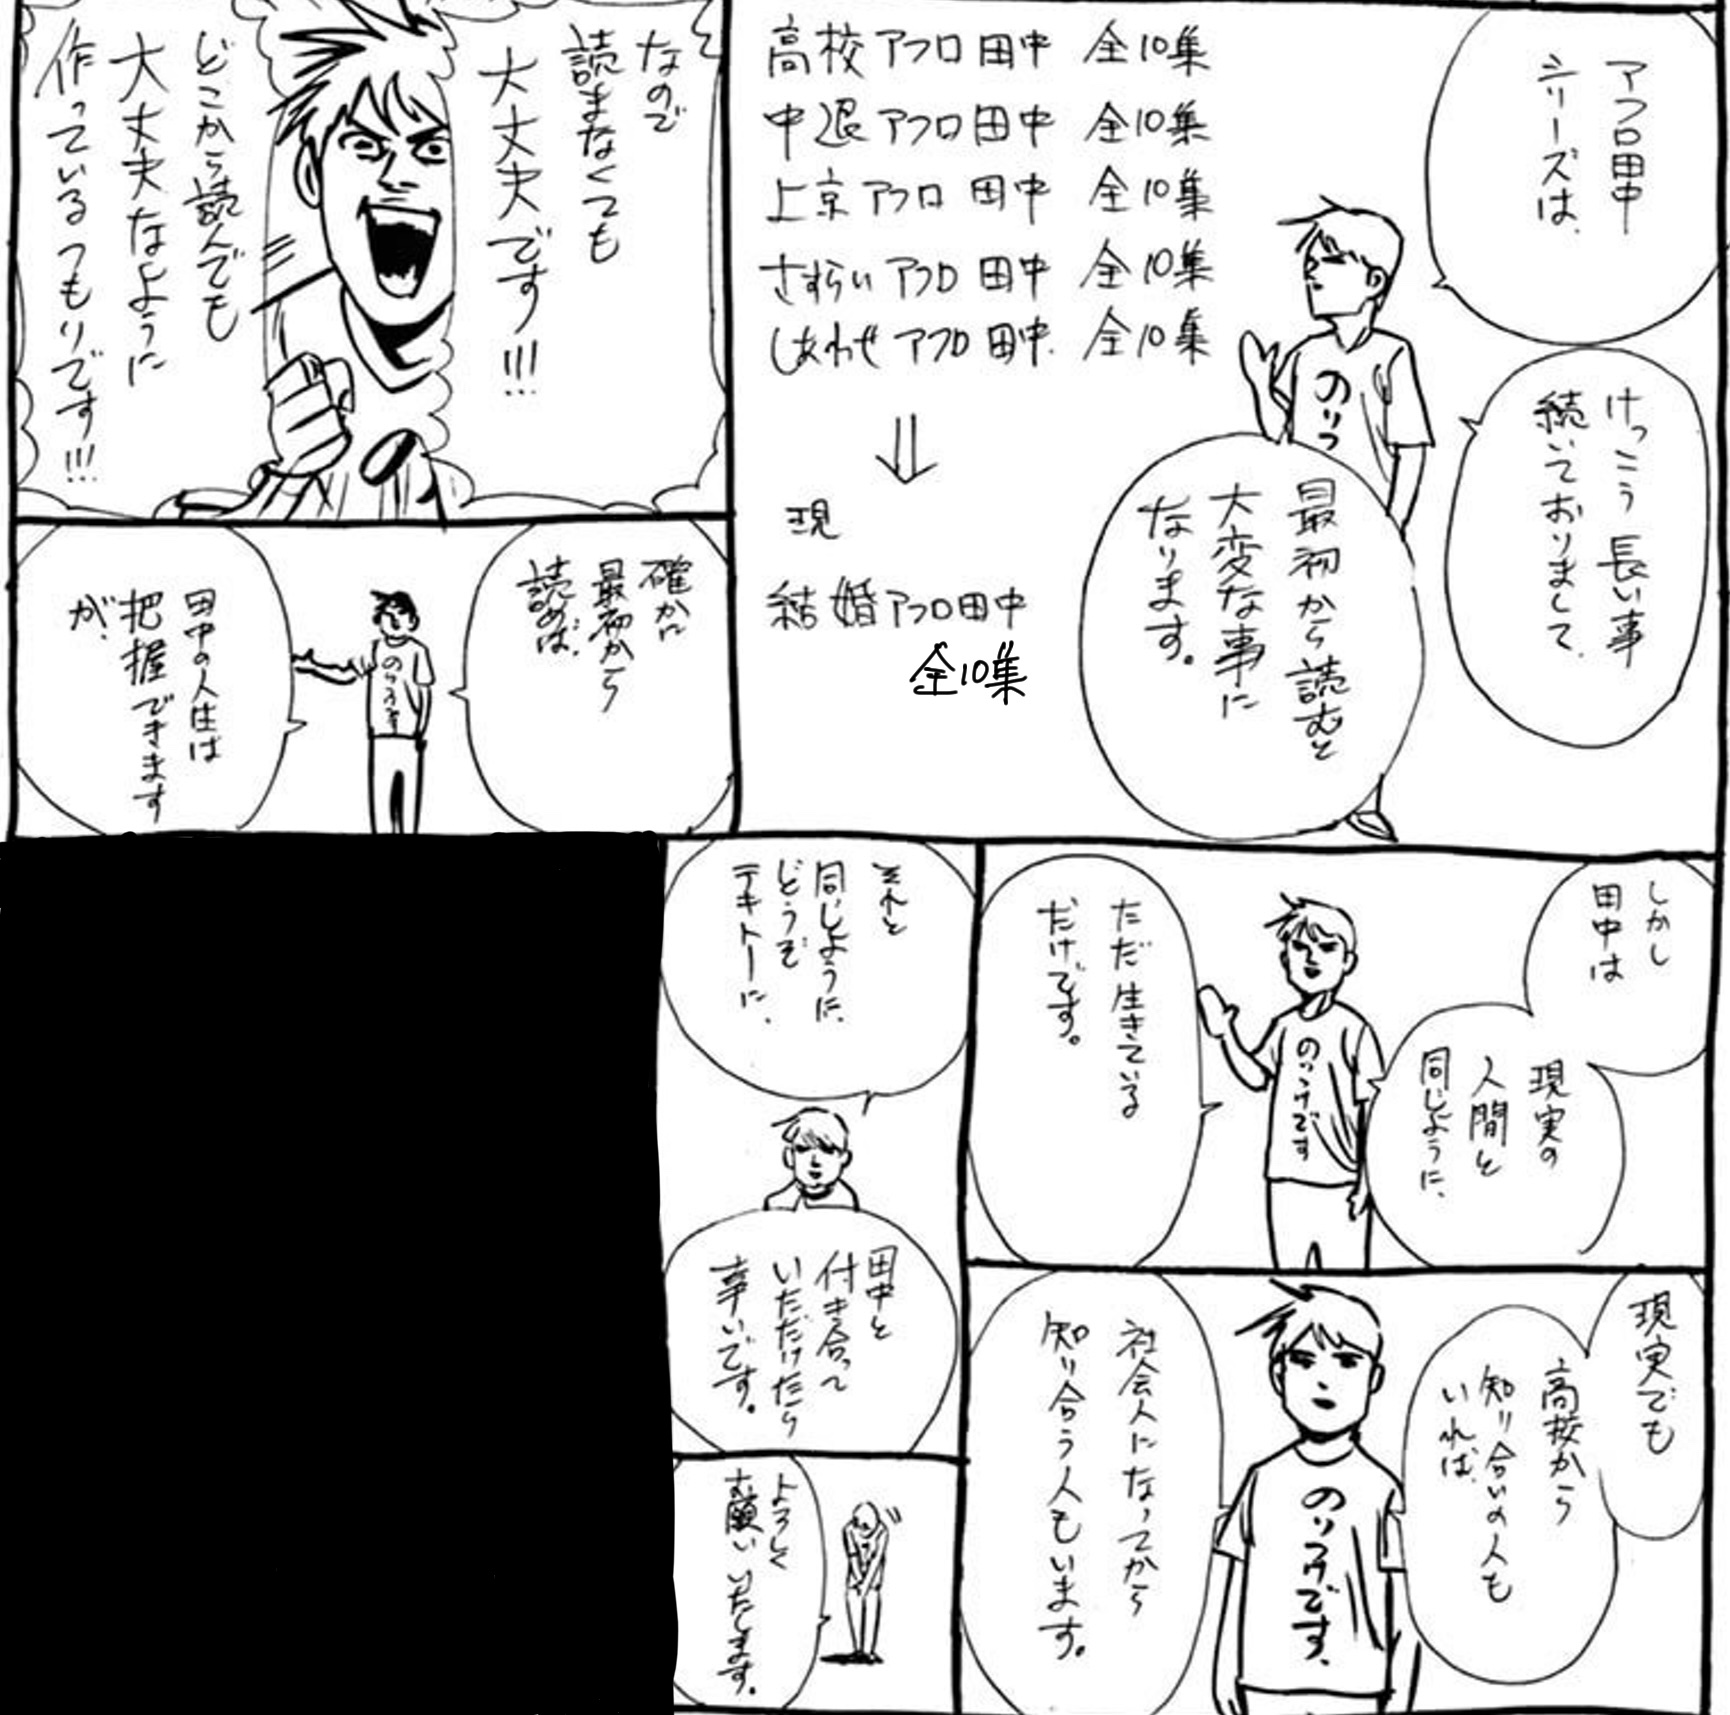 アフロ田中
シリーズは、
けっこう長い事
続いておりまして、
高校アフロ田中 全10集
中退アフロ田中 全10集
上京アフロ田中 全10集
さすらいアフロ田中 全10集
しあわせアフロ田中 全10集
⇓
現
結婚アフロ田中
全10集
のりつ
最初から読むと
大変な事に
なります。
なので
読まなくても
大丈夫です!!!
どこから読んでも
大丈夫なように
作っているつもりです!!!
確かに
最初から
読めば、
のりつけ
田中の人生は
把握できます
が、
しかし
田中は
現実の
人間と
同じように、
のりつけです
ただ生きている
だけです。
現実でも
高校から
知り合いの人も
いれば、
のりつけです、
社会人になってから
知り合う人もいます。
それと
同じように、
どうぞ
テキトーに、
田中と
付き合って
いただけたら
幸いです。
よろしく
お願いいたします。